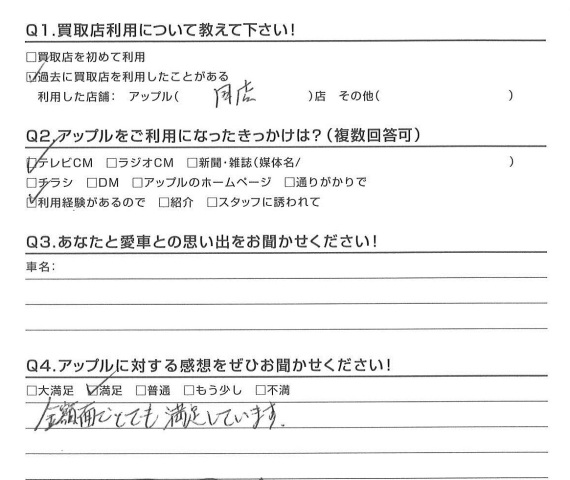 Q1.買取店利用について教えて下さい!
□買取店を初めて利用
☑過去に買取店を利用したことがある
利用した店舗: アップル( 同店 )店 その他( )
Q2.アップルをご利用になったきっかけは?(複数回答可)
☑テレビCM □ラジオCM □新聞・雑誌(媒体名/ )
☑チラシ □DM □アップルのホームページ □通りがかりで
☑利用経験があるので □紹介 □スタッフに誘われて
Q3.あなたと愛車との思い出をお聞かせください!
車名:
Q4.アップルに対する感想をぜひお聞かせください!
□大満足 ☑満足 □普通 □もう少し □不満
金額面でとても満足しています.